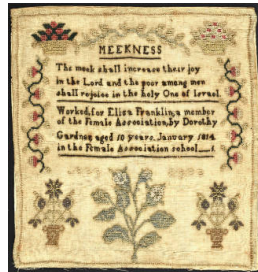 MEEKNESS
The meek shall increase their joy
in the Lord and the poor among men
shall rejoice in the holy One of Israel.
Worked, for Eliza Franklin, a member
of the Female Association, by Dorothy
Gardner aged 10 years, January 1814
in the Female Association school